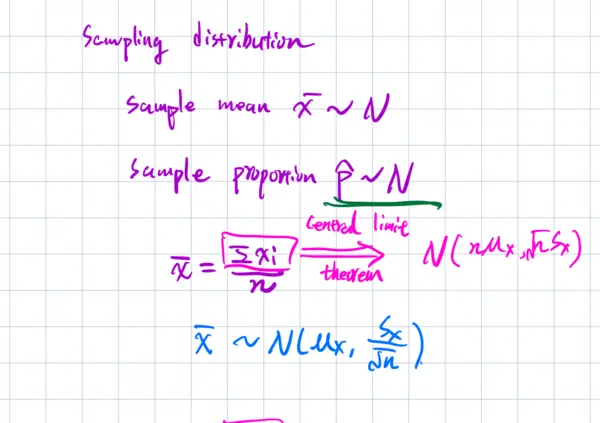 Sampling distribution
Sample mean x̄ ~ N
Sample proportion p̂ ~ N
x̄ = Σxi / n central limit theorem N(nμx, √n Sx)
x̄ ~ N(μx, Sx/√n)